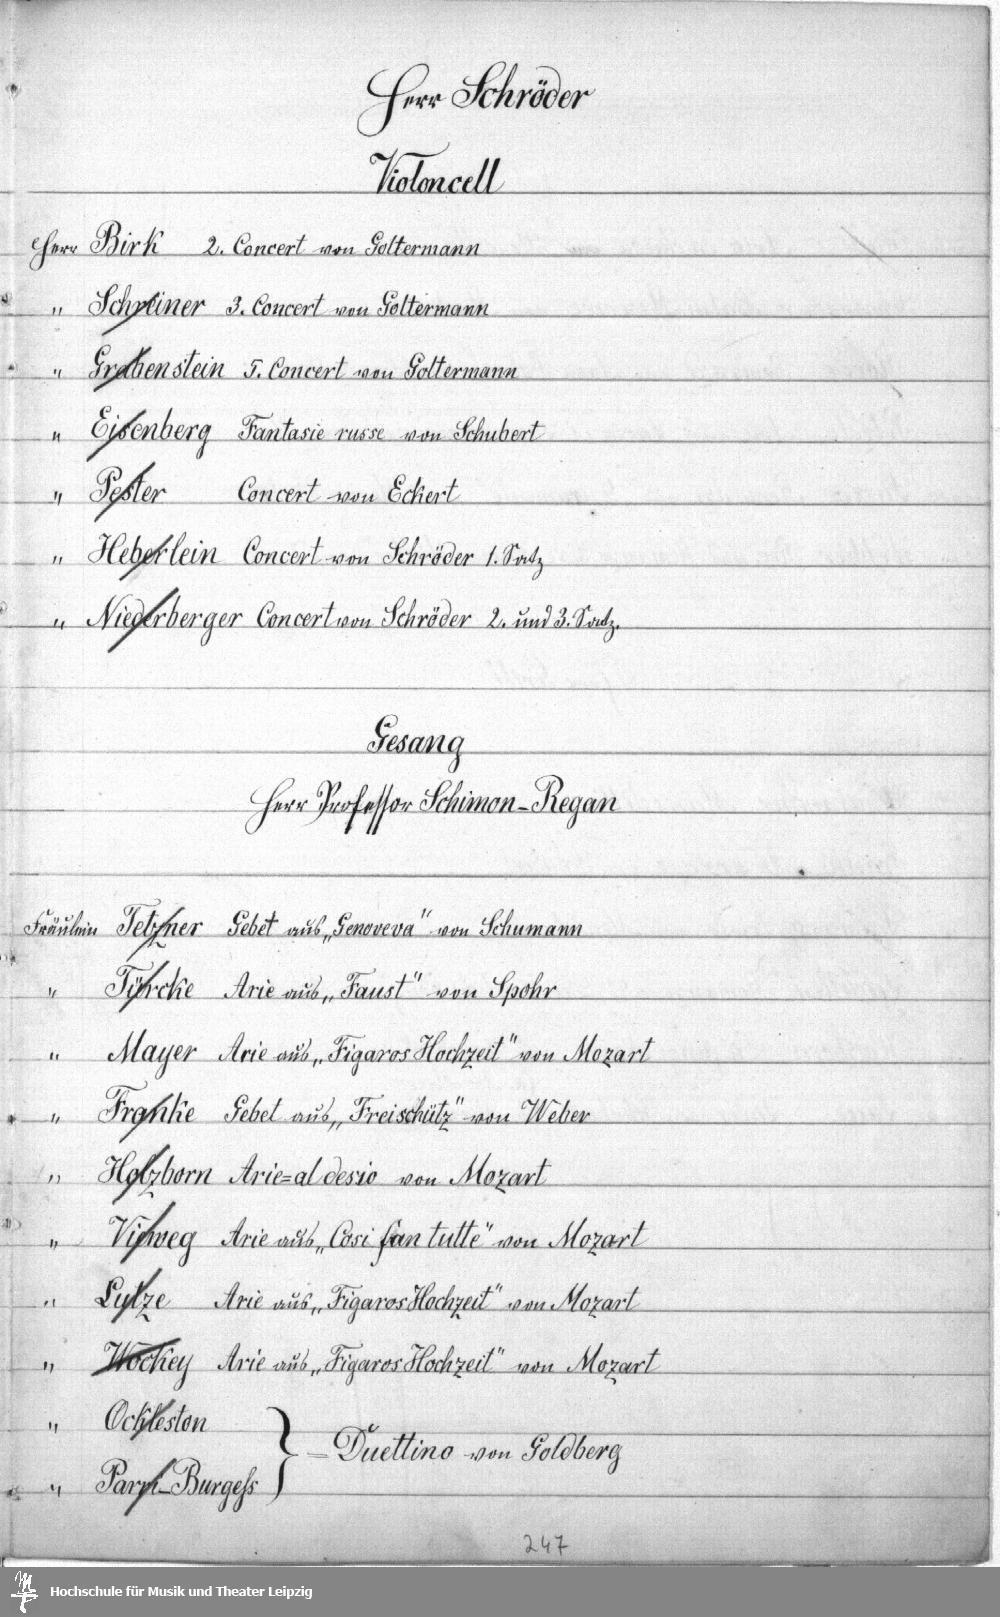 Herr Schröder
Violoncell
Herr Birk 2. Concert von Goltermann
" Schreiner 3. Concert von Goltermann
" Grabenstein 5. Concert von Goltermann
" Eisenberg Fantasie russe von Schubert
" Pester Concert von Eckert
" Heberlein Concert von Schröder 1. Satz
" Niederberger Concert von Schröder 2. und 3. Satz.
Gesang
Herr Professor Schimon-Regan
Fräulein Tetzner Gebet aus „Genoveva" von Schumann
" Türcke Arie aus „Faust" von Spohr
" Mayer Arie aus „Figaros Hochzeit" von Mozart
" Franke Gebet aus „Freischütz" von Weber
" Holzborn Arie=al desio von Mozart
" Vieweg Arie aus „Cosi fan tutte" von Mozart
" Lutze Arie aus „Figaros Hochzeit" von Mozart
" Wockey Arie aus „Figaros Hochzeit" von Mozart
" Ockleston
} = Duettino von Goldberg
" Parry-Burgess
247
Hochschule für Musik und Theater Leipzig